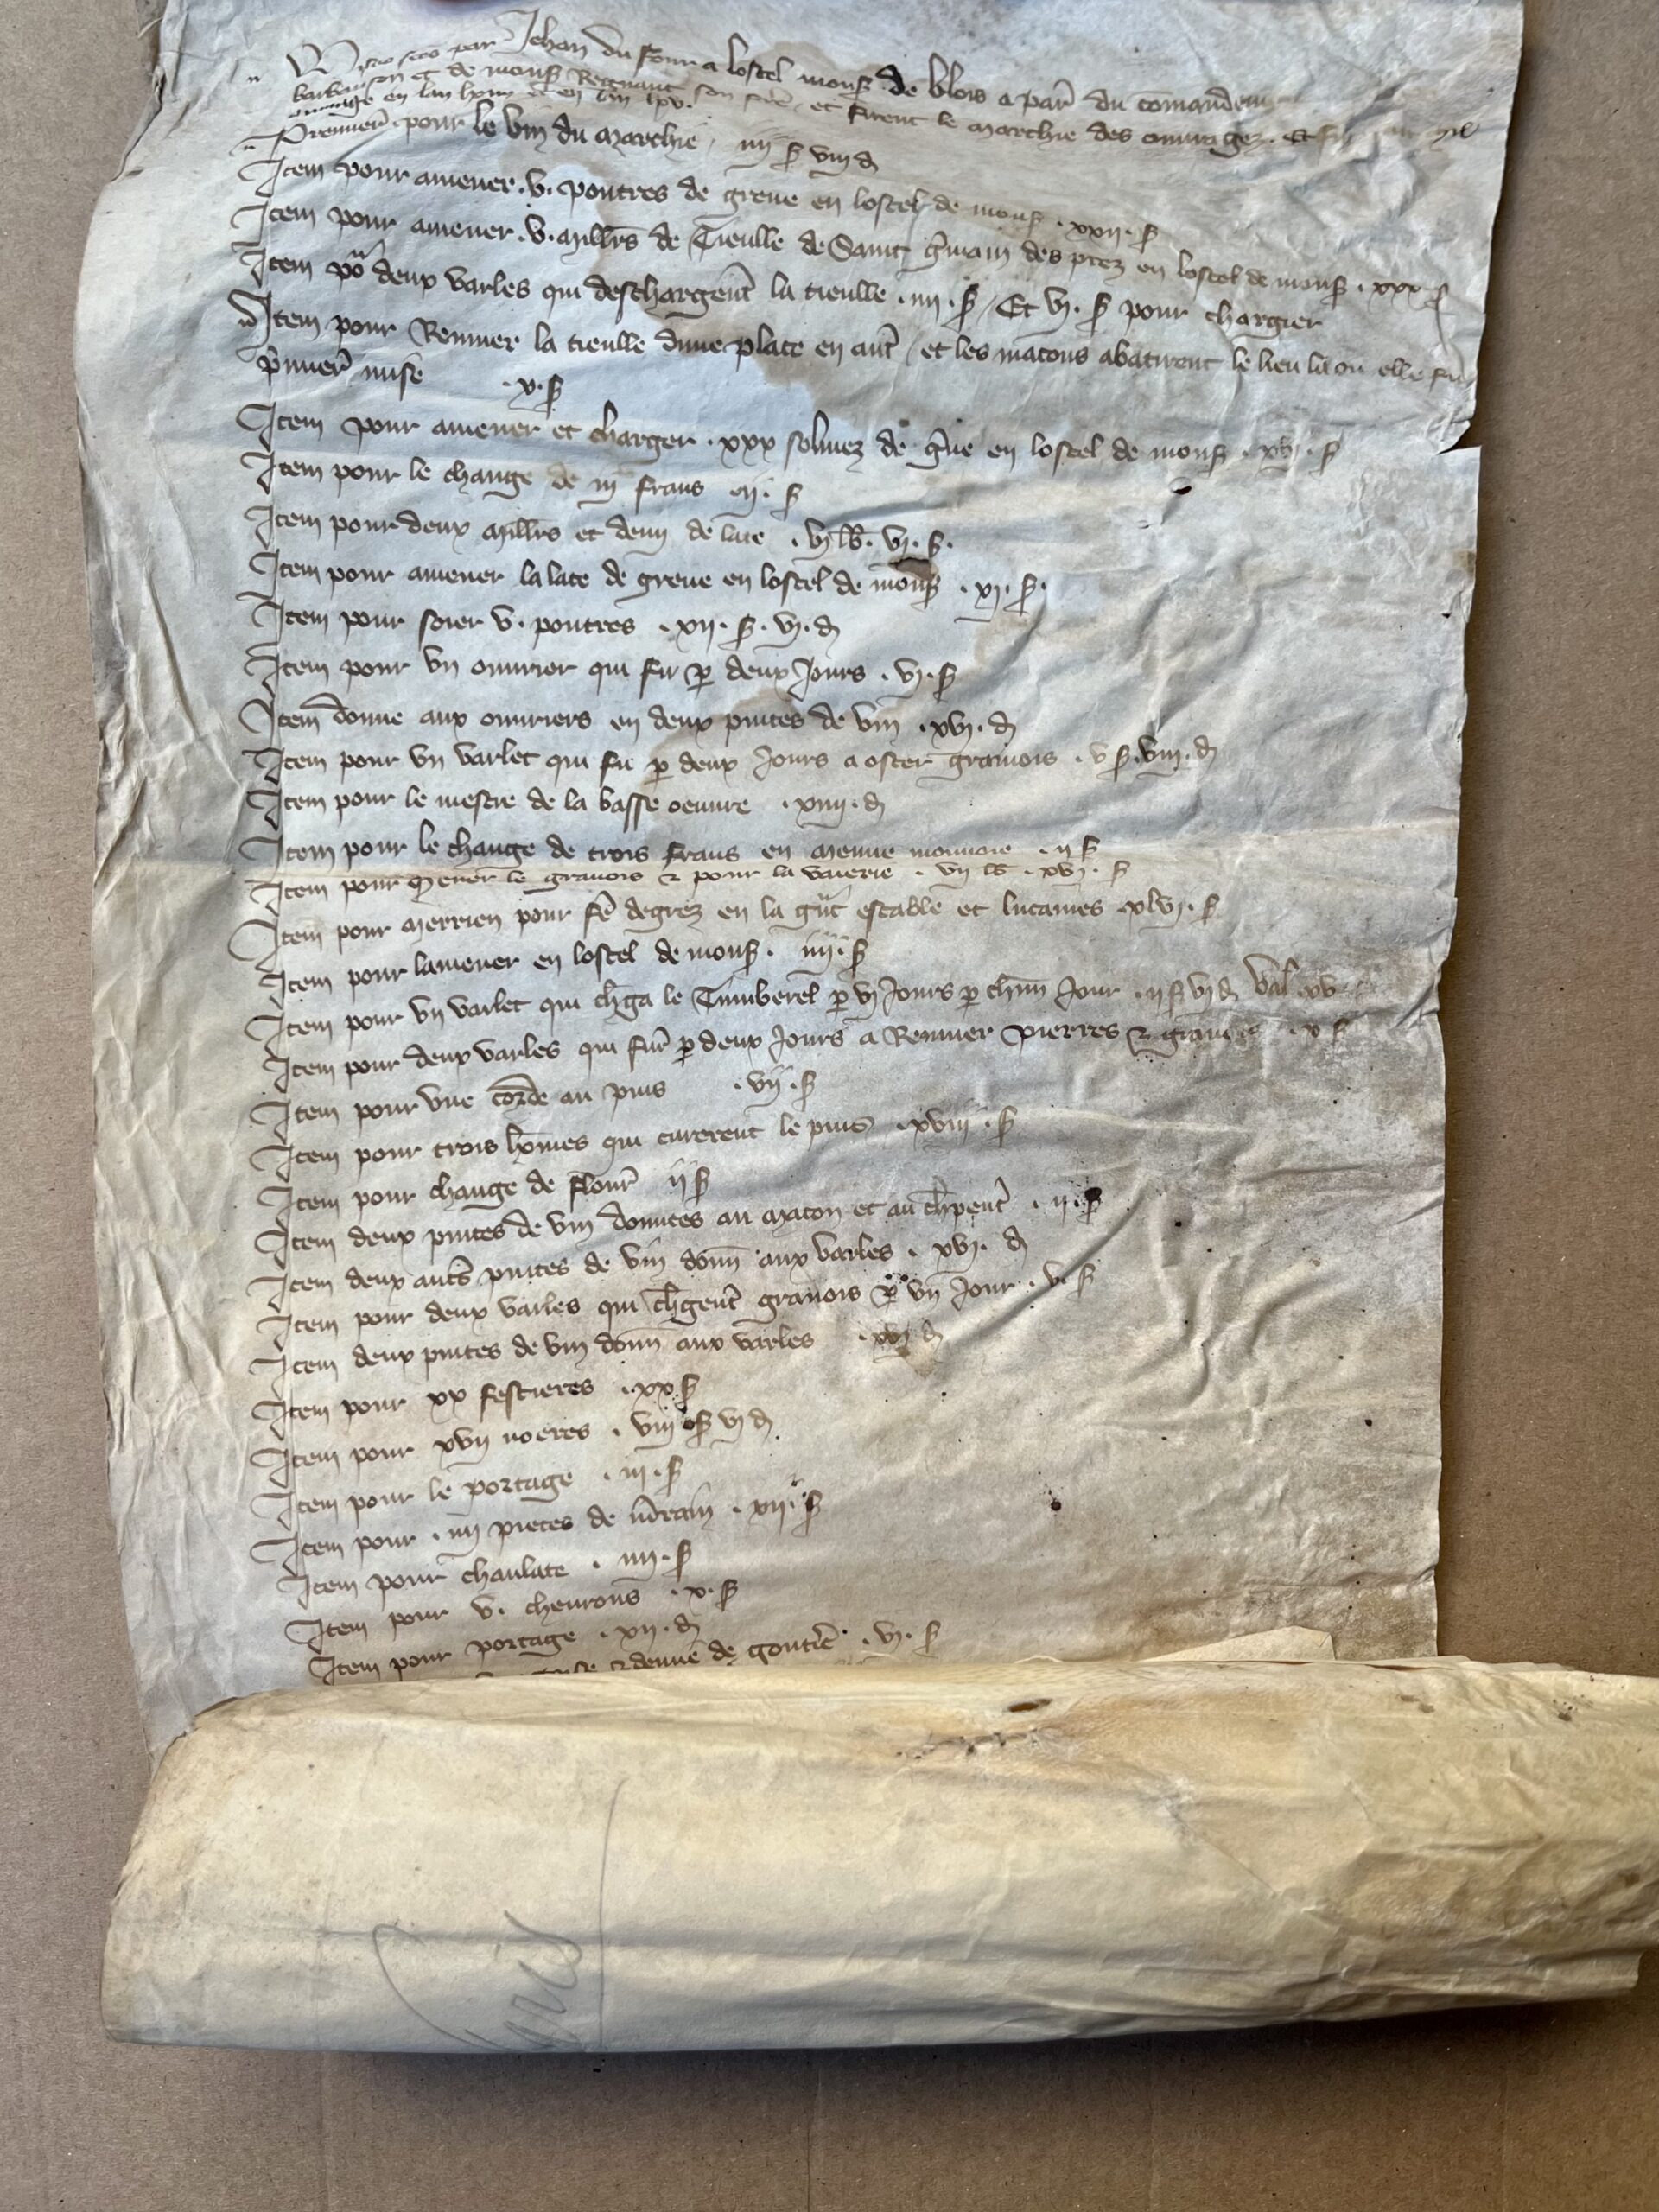 par Jehan du four a lostel mons de blois a par du comandem
et de mons Regnaut son et firent le marchie des ouurages. Et
en lan lxiiii et en lan lxv.
Premier pour le vin du marchie. iiii s viii d
Item pour amener .v. poutres de greue en lostel de mons . xxii . s
Item pour amener .v. millrs de Tieulle de Saint gmain des prez en lostel de mons . xxx s
Item po deux varles qui deschargent la tieulle . iiii . s / Et vi . s pour chargier
Item pour Remuer la tieulle dune place en aut / et les macons abatirent le lieu la ou elle fu
pmier mise . x . s
Item pour amener et charger . xxx soliuez de gue en lostel de mons . xvi . s
Item pour le change de frans . s
Item pour deux millrs et demi de late . vi lb . vi . s .
Item pour amener la late de greue en lostel de mons . xi . s .
Item pour soier v . poutres . xii . s . vi . d
Item pour vn ouurier qui fu p deux Jours . vi . s
Item donne aux ouuriers en deux pintes de vin . xvi . d
Item pour vn varlet qui fu p deux Jours a oster grauois . v s . viii . d
Item pour le mestre de la basse oeuure . xiiii . d
Item pour le change de trois frans en menue monnoie . ii s
Item pour mener le grauois et pour la voierie . vii lb . xvi . s
Item pour merrien pour fe degrez en la gnt estable et lucannes . xlvi . s
Item pour lamener en lostel de mons . iiii . s
Item pour vn varlet qui chga le Timberel p vi Jours p chun Jour . ii s vi d val xv
Item pour deux varles qui fur p deux Jours a Remuer pierres et grauois . x s
Item pour vne corde au puis . vii . s
Item pour trois homes qui curerent le puis . xviii . s
Item pour change de flour ii s
Item deux pintes de vin donnees au macon et au chpent . ii . s
Item deux auts pintes de vin donn aux varles . xvi . d
Item pour deux varles qui chgent grauois p vn Jour . v . s
Item deux pintes de vin donn aux varles . xvi d
Item pour xx festieres . xx s
Item pour xvii noeres . viii s vi d
Item pour le portage . iii . s
Item pour . iiii pieces de mrain . xii . s
Item pour chanlate . iiii . s
Item pour v . cheurons . x . s
Item pour portage . xii . d
de goutie . vi . s